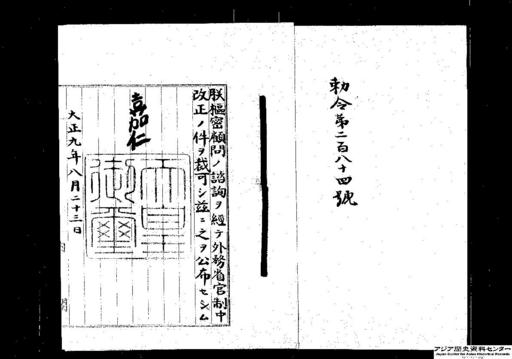 勅令第二百八十四號
朕樞密顧問ノ諮詢ヲ經テ外務省官制中
改正ノ件ヲ裁可シ茲ニ之ヲ公布セシム
嘉仁
天皇御璽
大正九年八月二十三日
アジア歴史資料センター
Japan Center for Asian Historical Records